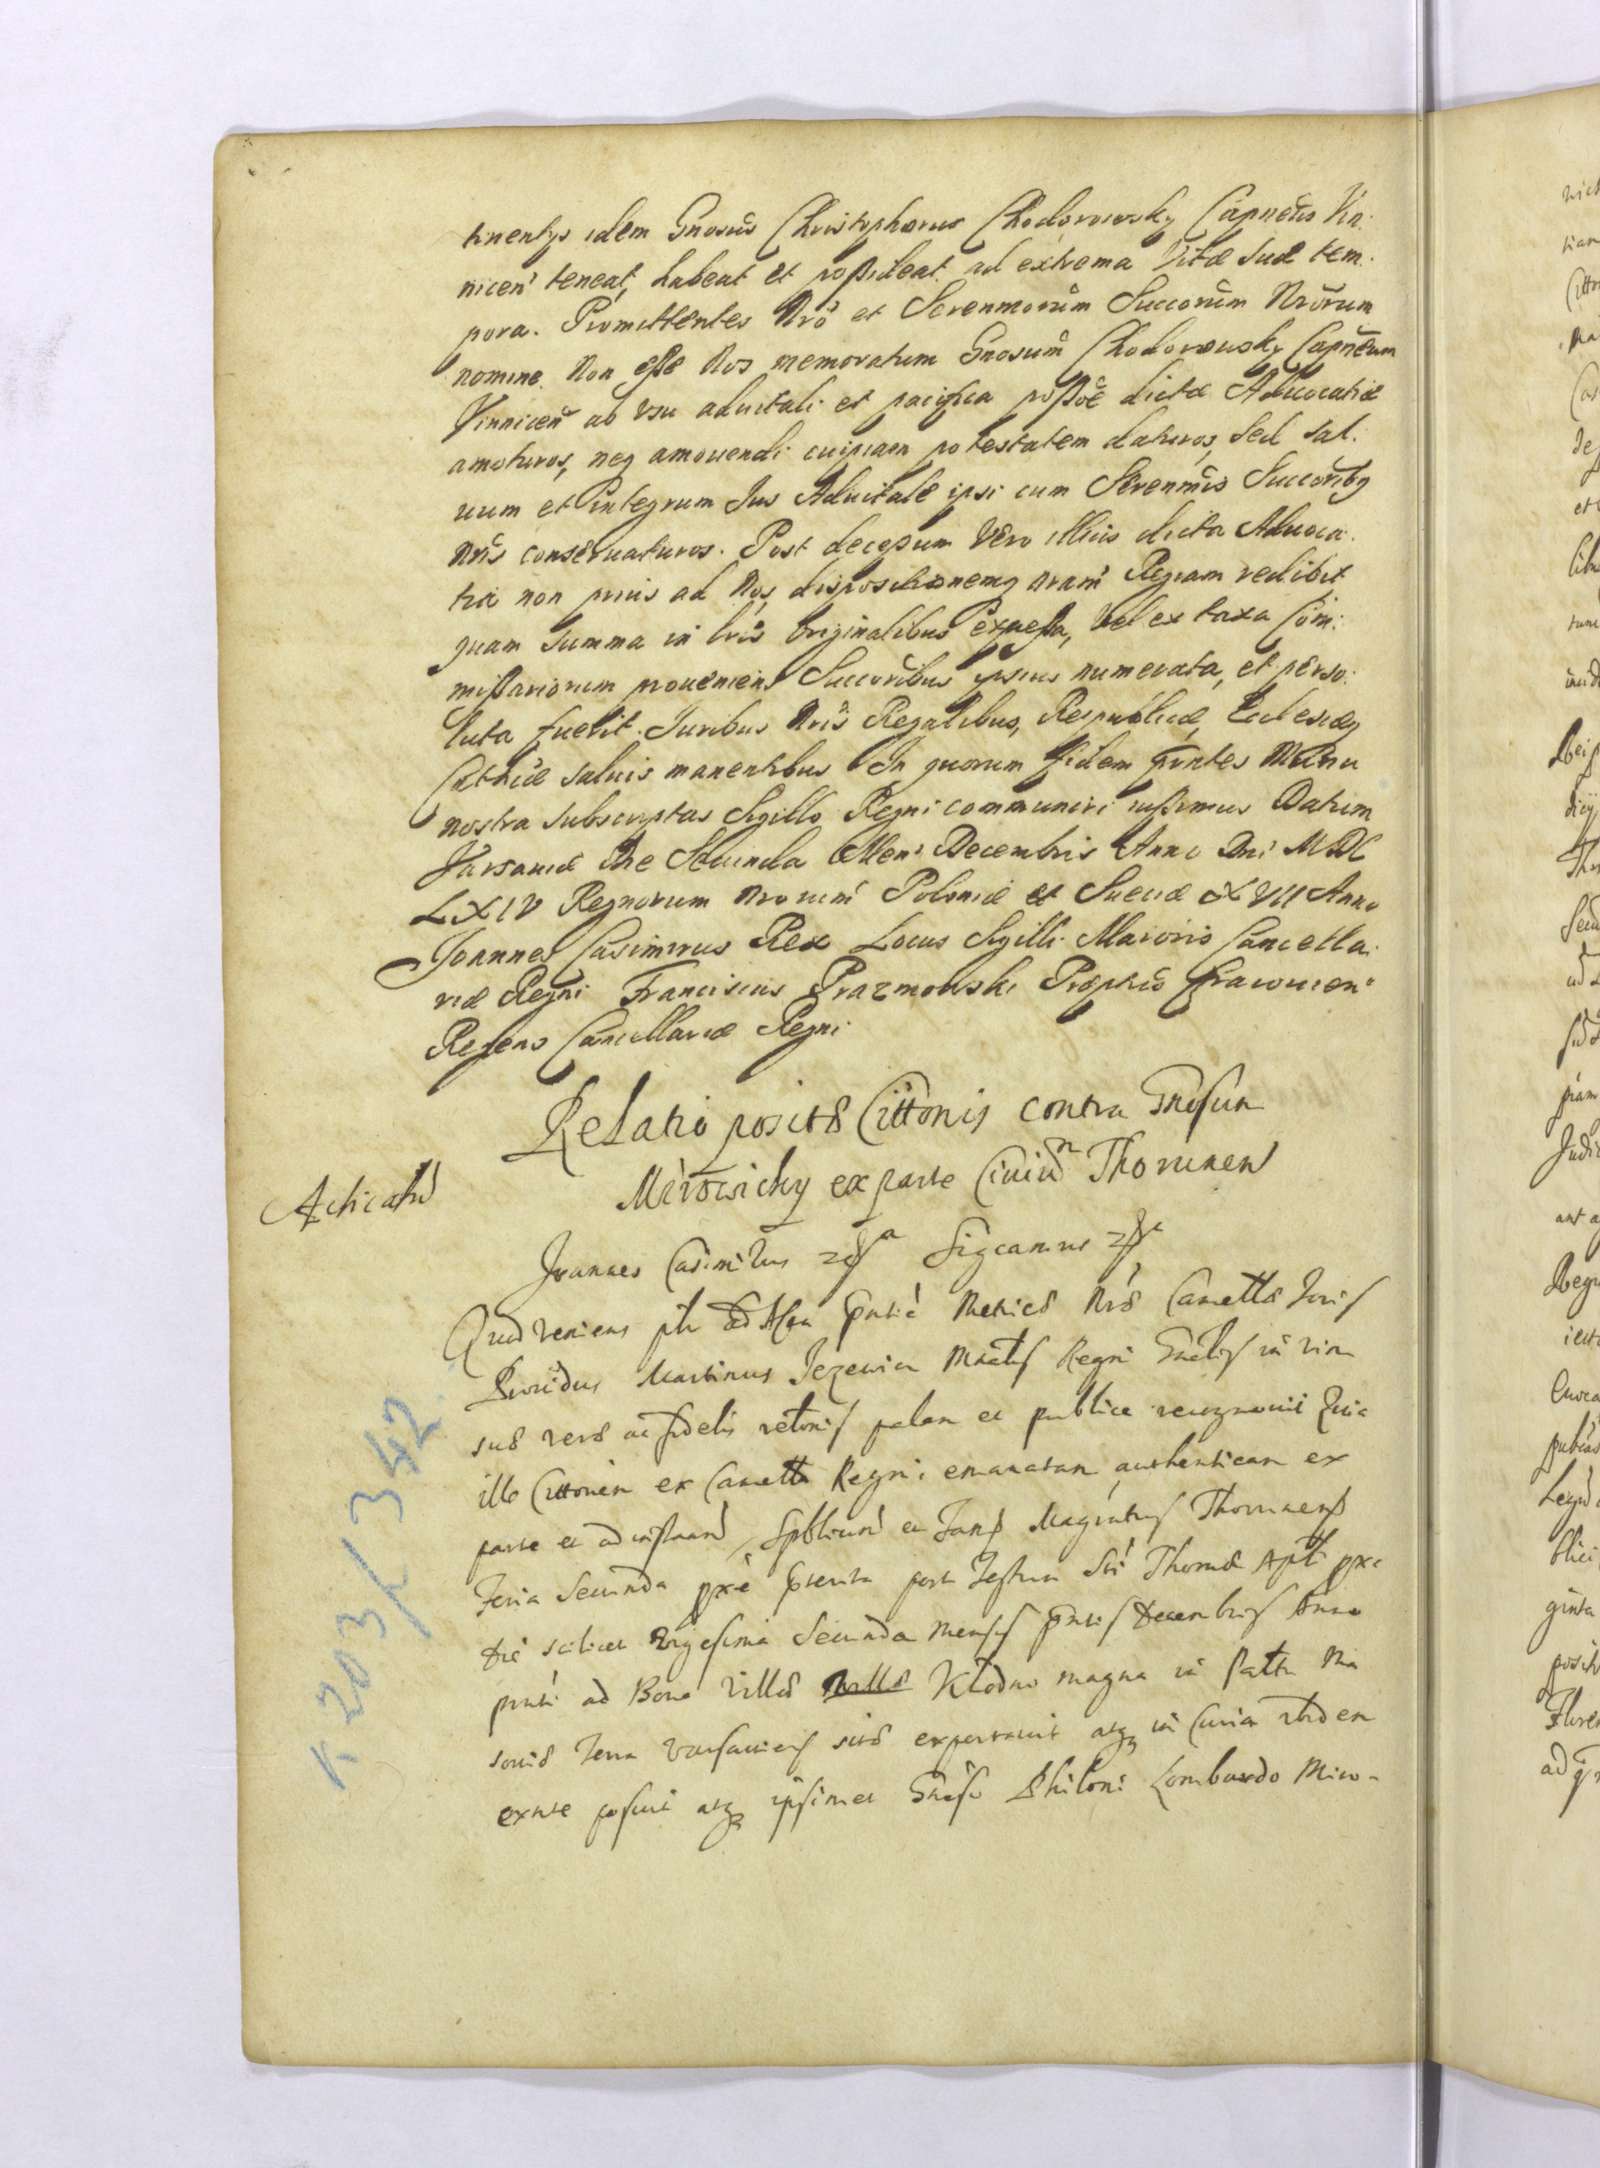 tinentys idem Gnosus Christophorus Chodorowsky Capneus Vin:
nicen' teneat, habeat et possideat ad extrema Vitæ suæ tem.
pora. Promittentes Nrõ et Serenmorum Succorum Nrorum
nomine Non esse Nos memoratum Gnosum Chodorowsky Capneum
Vinnicen ab vsu aduitali et pacifica possoe dictæ Aduocatiæ
amoturos, neq amouendi cuipiam potestatem daturos, sed sal.
uum et integrum Jus Aduitale ipsi cum Serenmis Succoribq
Nris conseruaturos. Post decessum Vero illius dicta Aduoca.
tia non prius ad Nos, dispositionemq nram Regiam redibit
quam summa in lris Originalibus expressa, Vel ex taxa Com:
missariorum proueniens Succoribus ipsius numerata, et perso:
luta fuerit. Juribus Nris Regalibus, Reipublicæ, Ecclesiæq
Cathcæ saluis manentibus In quorum fidem pntes Manu
nostra subscriptas Sigillo Regni communiri iussimus Datum
Varsauiæ Die Secunda Mens Decembris Anno Dni M DC
LXIV Regnorum Nrorum Poloniæ et Sueciæ XVII Anno
Joannes Casimirus Rex Locus Sigilli Maioris Cancella.
riæ Regni Franciscus Prazmowski Præptus Cracouien'
Regens Cancellariæ Regni
Relatio positæ Citonis contra Gnosum
Mirowicky ex parte Ciuium Thorunen
Acticatio
Joannes Casimirus Sigcamus
Quod veniens plr ad Acta pntia Metrices Nræ Cancellæ
Prouidus Martinus Jezewicz Mnelis Regni Gnelis in vim
suæ veræ ac fidelis relonis palam et publice recognouit Quia
ille Citonem ex Cancella Regni emanatam authenticam ex
parte et ad instaam Spblium et Magratus Thorunens
Feria Secunda pxe pterita post Festum Sti Thomæ Apli pxe
die scilicet vigesima Secunda mensis pntis Decembris Anno
pnti ad Bona villæ villæ Klodno magna in Pallu Ma
souiæ Terra Varsauien sitæ exportauit atq in Curia ibidem
exnte posuit atq ipsimet Gnoso Philoni Lombardo Miro-
K 203/342